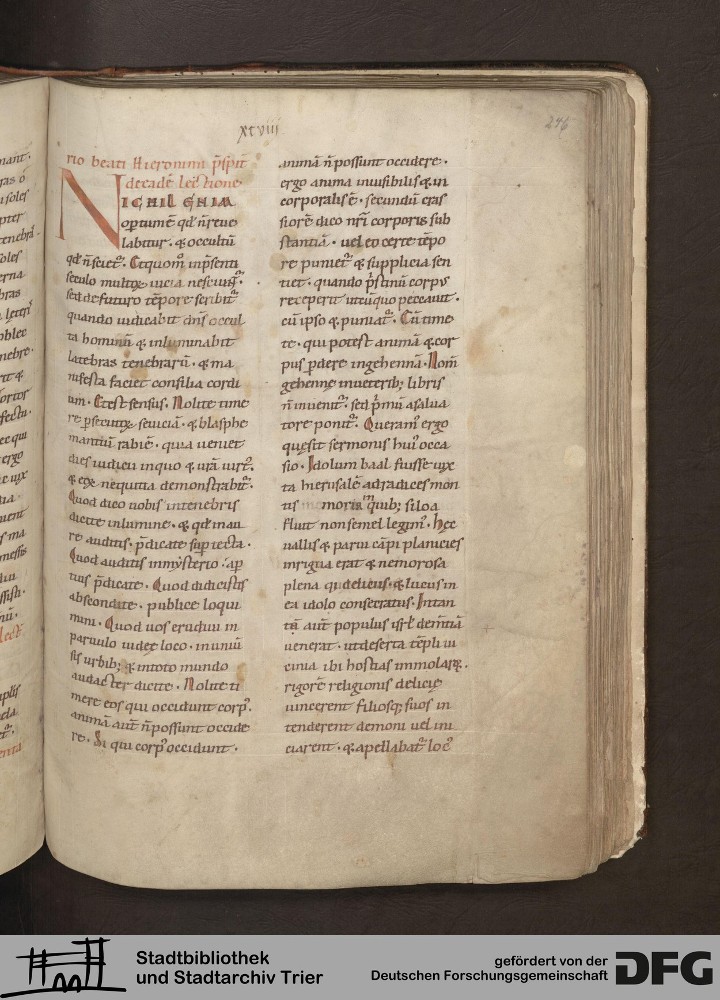 xcviii
246
rio beati Hieronimi p̄sp̄it
de eadē lectione
NICHIL ENIM
optum̄e qd n̄ reue
labitur · & occultū
qd n̄ sciet᷑. Et quom̄ inp̄senti
seculo multoꝝ uicia nesciunt᷑·
sed de futuro tēpore scribit᷑
quando iudicabit dn̄s occul
ta hominū & inluminabit
latebras tenebrarū · & ma
nifesta faciet consilia cordi
um. Et est sensus. Nolite time
re p̄secutoꝝ seuiciā · & blasphe
mantiū rabiē · quia ueniet
dies iudicii in quo & ur̄a uirt᷑·
& eoꝝ nequitia demonstrabit᷑·
Quod dico uobis in tenebris
dicite in lumine · & qd in au
re auditis · p̄dicate sup tecta ·
Quod auditis in mysterio · ap
tius p̄dicate · Quod didicistis
abscondite · publice loqui
mini · Quod uos erudiui in
paruulo iudeę loco · in uniū
sis urbib; & in toto mundo
audacter dicite · Nolite ti
mere eos qui occidunt corp᷒·
animā aut̄ n̄ possunt occide
re · Si qui corp᷒ occidunt ·
animā n̄ possunt occidere ·
ergo anima inuisibilis & in
corporalis ē · secundū cras
siorē dico nr̄i corporis sub
stantiā · uel eo certe tēpo
re puniet᷑ & supplicia sen
tiet · quando p̄stinū corp᷒
receperit ut cū quo peccauit ·
cū ipso & puniat᷑ · Cū time
te · qui potest animā & cor
pus p̄dere in gehennā · Nom̄
gehenne in ueterib; libris
n̄ inuenit᷑ · sed p̄mū a salua
tore ponit᷑ · Queram᷒ ergo
quę sit sermonis hui᷒ occa
sio · Idolum baal fuisse iux
ta hierusalē ad radices mon
tis moria in quib; siloa
fluit non semel legim᷒ · hęc
uallis & parui cāpi planicies
inrigua erat & nemorosa
plena qui deliciis · & lucus in
ea idolo consecratus · In tan
tū aut̄ populus isr̄l dem̄tiā
uenerat · ut deserta tēpli ui
cinia ibi hostias immolarę ·
rigorē religionis delicię
uincerent filiosq; suos in
tenderent demoni uel ini
ciarent · & apellabat᷑ loc᷒
Stadtbibliothek
und Stadtarchiv Trier
gefördert von der
Deutschen Forschungsgemeinschaft
DFG